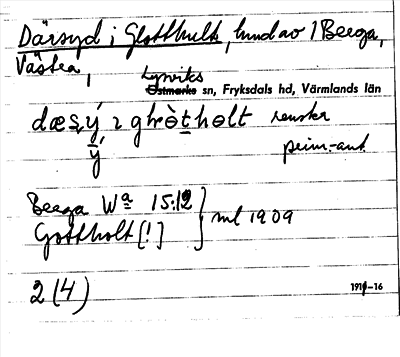 Därsyd i Glotthult, hmd av 1 Berga,
Västra,
Lysviks
Östmarks sn, Fryksdals hd, Värmlands län
dæṣ,ý ɿ glròthəlt
ý
Berga Wa 15:12
Gottholt [!] } ml 1909
2 (4)
1911-16